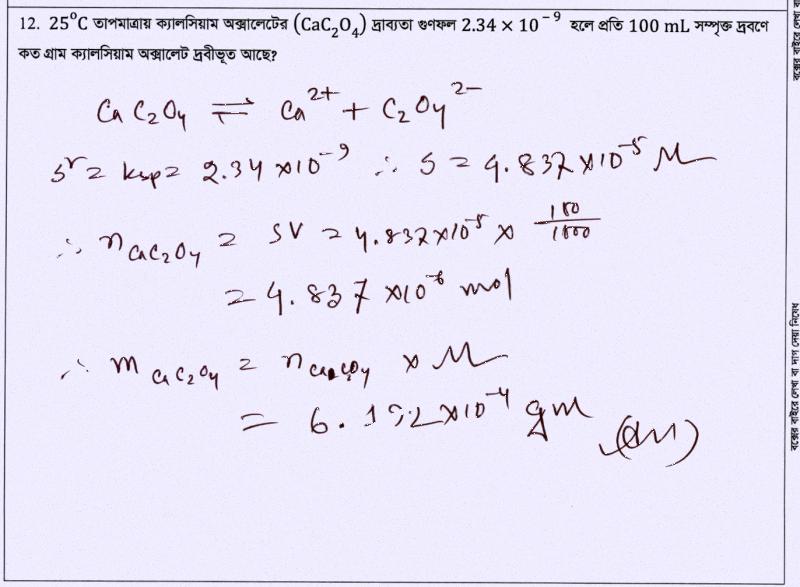 12. 25°C তাপমাত্রায় ক্যালসিয়াম অক্সালেটের (CaC₂O₄) দ্রাব্যতা গুণফল 2.34 × 10⁻⁹ হলে প্রতি 100 mL সম্পৃক্ত দ্রবণে
কত গ্রাম ক্যালসিয়াম অক্সালেট দ্রবীভূত আছে?
CaC₂O₄ ⇌ Ca²⁺ + C₂O₄²⁻
S² = ksp = 2.34 × 10⁻⁹ ∴ S = 4.837 × 10⁻⁵ M
∴ n CaC₂O₄ = SV = 4.837 × 10⁻⁵ × 100/1000
= 4.837 × 10⁻⁶ mol
∴ m CaC₂O₄ = n CaC₂O₄ × M
= 6.192 × 10⁻⁴ gm (Ans)
বক্সের বাইরে লেখা বা দাগ দেয়া নিষেধ